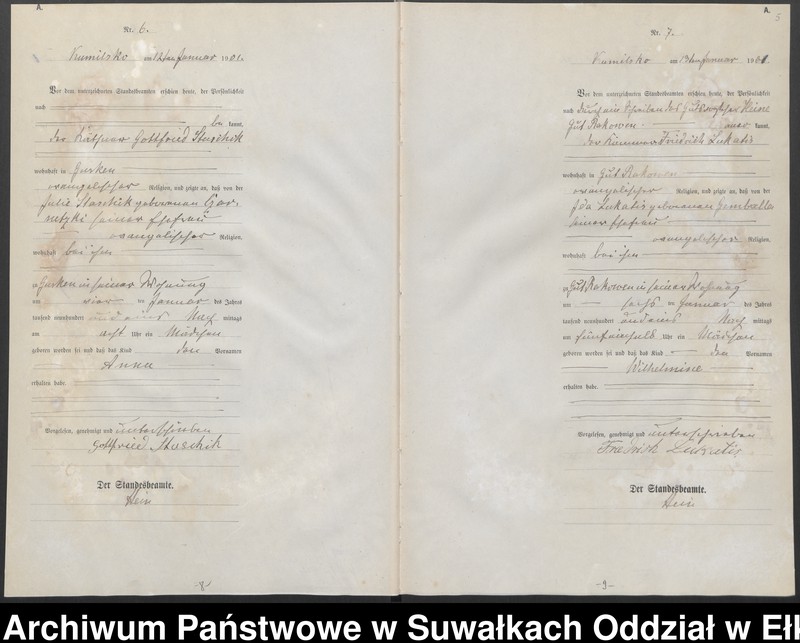 A.
Nr. 6.
Kumilsko am 12ten Januar 1901.
Vor dem unterzeichneten Standesbeamten erschien heute, der Persönlichkeit
nach
be kannt,
der Käthner Gottfried Staschik
wohnhaft in Gurken
evangelischer Religion, und zeigte an, daß von der
Julie Staschik geborenen Czar-
netzki seiner Ehefrau
evangelischer Religion,
wohnhaft bei ihm
zu Gurken in seiner Wohnung
am vier ten Januar des Jahres
tausend neunhundert und eins Nach mittags
um acht Uhr ein Mädchen
geboren worden sei und daß das Kind den Vornamen
Anna
erhalten habe.
Vorgelesen, genehmigt und unterschrieben
Gottfried Staschik
Der Standesbeamte.
Hein
-8-
A.
5
Nr. 7.
Kumilsko am Januar 1901.
Vor dem unterzeichneten Standesbeamten erschien heute, der Persönlichkeit
nach durch ein Schreiben des
Gut Rakowen aner kannt,
der Kämmerer Friedrich Lukatis
wohnhaft in Gut Rakowen
evangelischer Religion, und zeigte an, daß von der
Ida Lukatis geborenen Gemballa
seiner Ehefrau
evangelischer Religion,
wohnhaft bei ihm
zu Gut Rakowen in seiner Wohnung
am sechs ten Januar des Jahres
tausend neunhundert und eins Nach mittags
um Uhr ein Mädchen
geboren worden sei und daß das Kind den Vornamen
Wilhelmine
erhalten habe.
Vorgelesen, genehmigt und unterschrieben
Friedrich Lukatis
Der Standesbeamte.
Hein
-9-
Archiwum Państwowe w Suwałkach Oddział w Eł